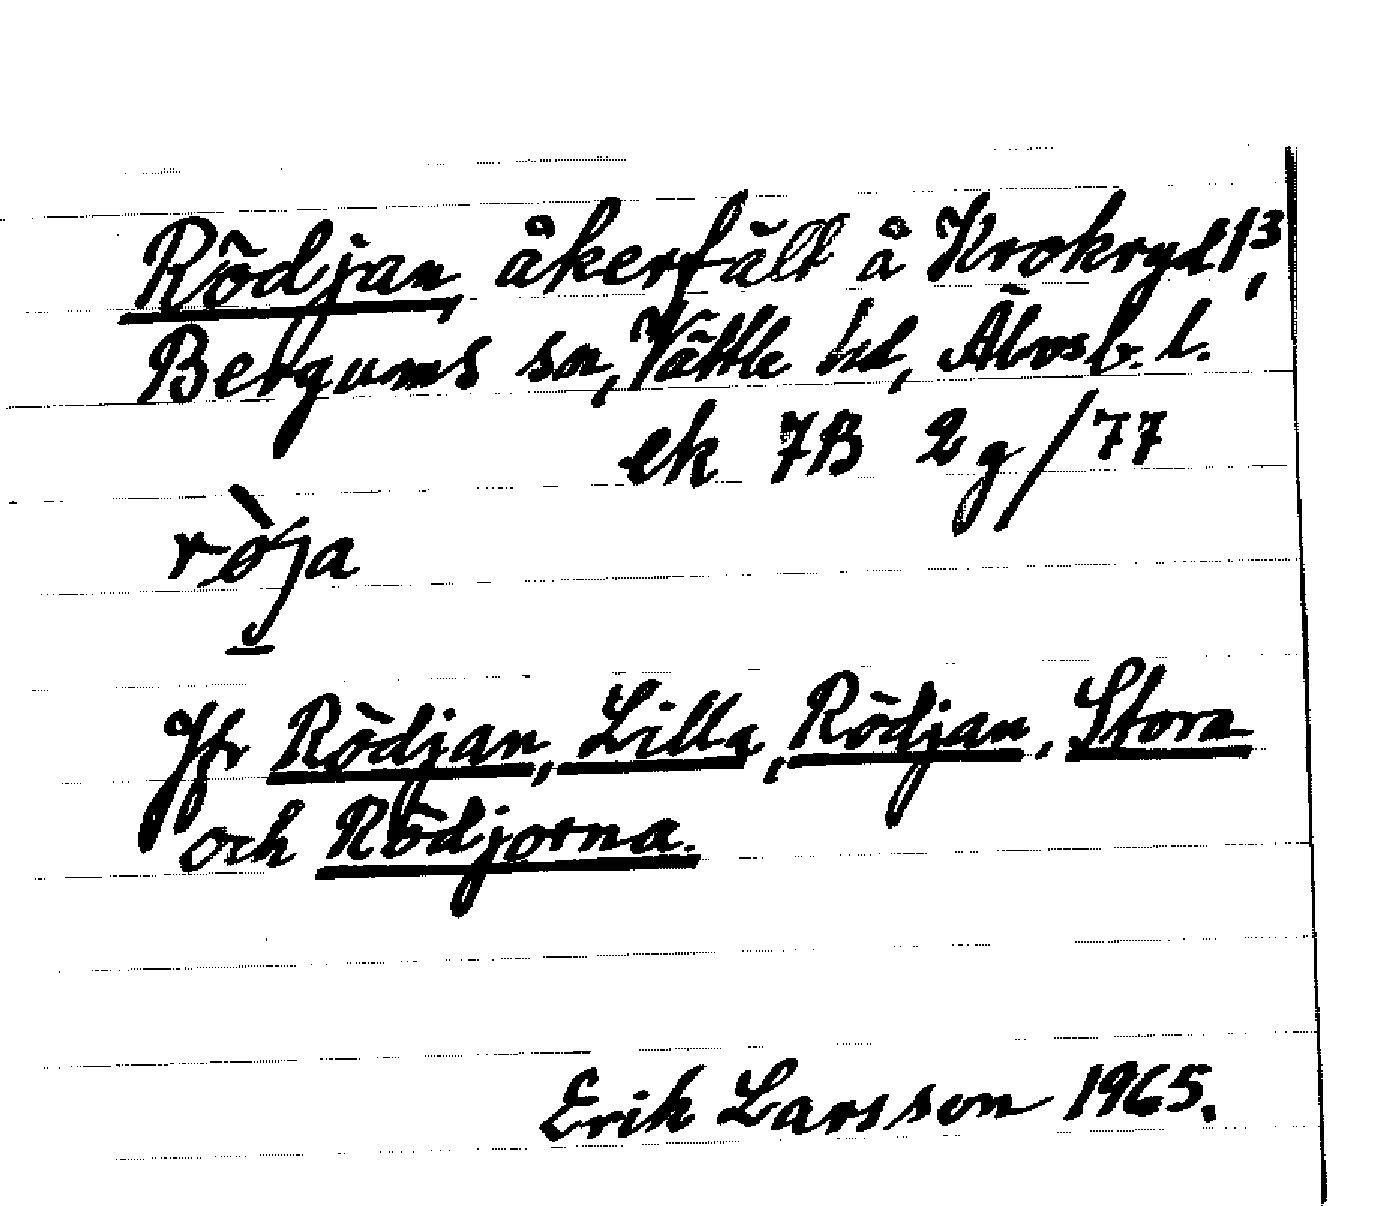 Rödjan, åkerfält å Krokryd 1³,
Bergums sn, Vättle hd, Älvsb. l.
ek 7B 2g/77
rø̀ja
Jfr Rödjan, Lilla, Rödjan, Stora
och Rödjorna.
Erik Larsson 1965.